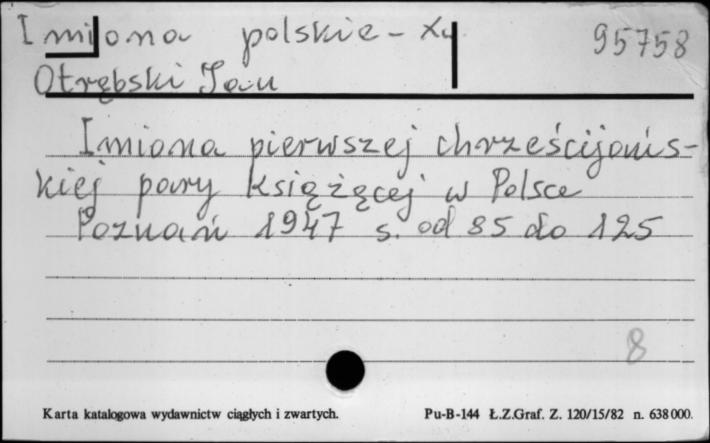 Imiona polskie - Xw
95758
Otrębski Jan
Imiona pierwszej chrześcijańs-
kiej pary książęcej w Polsce
Poznań 1947 s. od 85 do 125
8
Karta katalogowa wydawnictw ciągłych i zwartych.
Pu-B-144 Ł.Z.Graf. Z. 120/15/82 n. 638000.